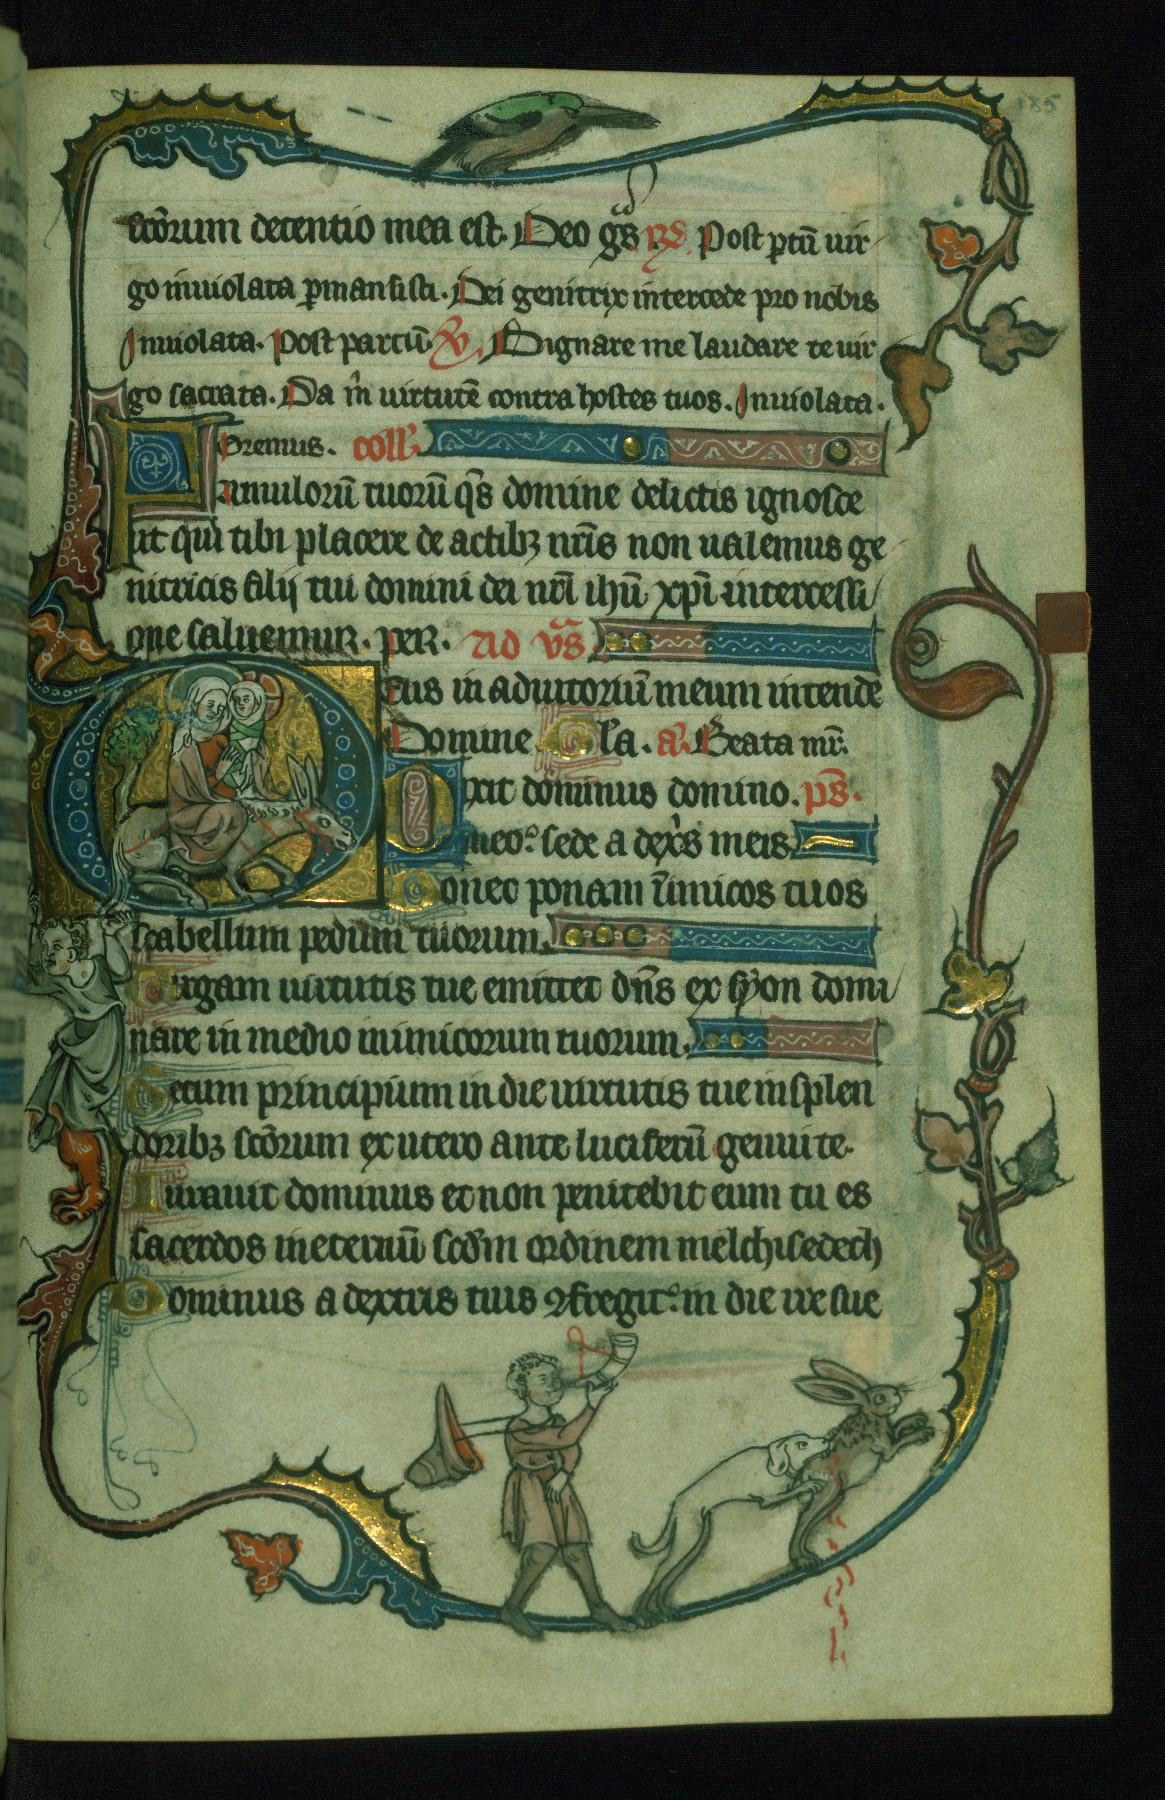 185
sc̄orum detentio mea est. Deo gr̄as R̄d. Post ꝑtū uir
go inuiolata ꝑmansisti. Dei genitrix intercede pro nobis
Inuiolata. Post partū. V̄. Dignare me laudare te uir
go sacrata. Da m̄ uirtutē contra hostes tuos. Inuiolata.
Oremus. coll̄.
Famulorū tuorū qs̄ domine delictis ignosce
ut qui tibi placere de actibꝫ nr̄is non ualemus ge
nitricis filij tui domini dei nr̄i ihū xp̄i intercessi
one saluemur. per. AD vs̄
Deus in adiutoriū meum intende
Domine Gl̄a. a. Beata mr̄.
Dixit dominus domino. ps̄.
meo: sede a dext̄s meis
Donec ponam īimicos tuos
scabellum pedum tuorum.
Uirgam uirtutis tue emittet dn̄s ex syon domi
nare in medio inimicorum tuorum.
Tecum principium in die uirtutis tue in splen
doribꝫ sc̄orum ex utero ante luciferū genui te.
Iurauit dominus et non penitebit eum tu es
sacerdos in eternū scd̄m ordinem melchisedech
Dominus a dextris tuis ꝯfregit: in die ire sue